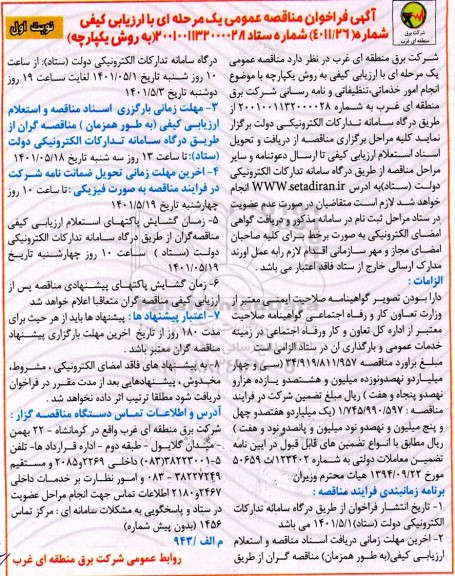 آگهی فراخوان مناقصه عمومی یک مرحله ای با ارزیابی کیفی
شماره (۴۰۱۱/۲۶) شماره ستاد ۲۰۰۱۰۰۱۱۳۲۰۰۰۰۲۸ (به روش یکپارچه)
نوبت اول
شرکت برق
منطقه ای غرب
شرکت برق منطقه ای غرب در نظر دارد مناقصه عمومی
یک مرحله ای با ارزیابی کیفی به روش یکپارچه با موضوع
انجام امور خدماتی،تنظیفاتی و نامه رسانی شرکت برق
منطقه ای غرب به شماره ۲۰۰۱۰۰۱۱۳۲۰۰۰۰۲۸ از
طریق درگاه سامانه تدارکات الکترونیکی دولت برگزار
نماید کلیه مراحل برگزاری مناقصه از دریافت و تحویل
اسناد استعلام ارزیابی کیفی تا ارسال دعوتنامه و سایر
مراحل مناقصه از طریق درگاه سامانه تدارکات الکترونیکی
دولت (ستاد)به ادرس WWW.setadiran.ir انجام
خواهد شد لازم است متقاضیان در صورت عدم عضویت
در ستاد مراحل ثبت نام در سامانه مذکور و دریافت گواهی
امضای الکترونیکی به صورت برخط برای کلیه صاحبان
امضای مجاز و مهر سازمانی اقدام لازم رابه عمل اورند
مدارک ارسالی خارج از ستاد فاقد اعتبار می باشد .
الزامات :
دارا بودن تصویر گواهینامه صلاحیت ایمنی معتبر از
وزارت تعاون کار و رفاه اجتماعی گواهینامه صلاحیت
معتبر از اداره کل تعاون و کار ورفاه اجتماعی در زمینه
خدمات عمومی و بارگذاری ان در ستاد الزامی است
مبلغ براورد مناقصه ۳۴/۹۱۹/۸۱۱/۹۵۷ (سی و چهار
میلیاردو نهصدونوزده میلیون و هشتصدو یازده هزارو
نهصدو پنجاه و هفت ) ریال مبلغ تضمین شرکت در فرایند
مناقصه : ۱/۷۴۵/۹۹۰/۵۹۷ (یک میلیاردو هفتصدو چهل
و پنج میلیون و نهصدو نود میلیون و پانصدو نود و هفت )
ریال مطابق با انواع تضمین های قابل قبول در ایین نامه
تضمین معاملات دولتی به شماره ۱۲۳۴۰۲/ت ۵۰۶۵۹
مورخ ۱۳۹۴/۰۹/۲۲ هیات محترم وزیران
برنامه زمانبندی فرایند مناقصه :
۱- تاریخ انتشار فراخوان از طریق درگاه سامانه تدارکات
الکترونیکی دولت (ستاد) ۱۴۰۱/۵/۱ می باشد
۲- اخرین مهلت زمانی دریافت اسناد مناقصه و استعلام
ارزیابی کیفی(به طور همزمان) مناقصه گران از طریق
درگاه سامانه تدارکات الکترونیکی دولت (ستاد): از ساعت
۱۰ روز شنبه تاریخ ۱۴۰۱/۰۵/۱ لغایت ساعت ۱۹ روز
دوشنبه تاریخ ۱۴۰۱/۵/۳
۳- مهلت زمانی بارگزری اسناد مناقصه و استعلام
ارزیابی کیفی (به طور همزمان ) مناقصه گران از
طریق درگاه سامانه تدارکات الکترونیکی دولت
(ستاد): تا ساعت ۱۳ روز سه شنبه تاریخ ۱۴۰۱/۰۵/۱۸
۴- اخرین مهلت زمانی تحویل ضمانت نامه شرکت
در فرایند مناقصه به صورت فیزیکی : تا ساعت ۱۰ روز
چهارشنبه تاریخ ۱۴۰۱/۵/۱۹
۵- زمان گشایش پاکتهای استعلام ارزیابی کیفی
مناقصه گران از طریق درگاه سامانه تدارکات الکترونیکی
دولت (ستاد ) : ساعت ۱۰ روز چهارشنبه تاریخ
۱۴۰۱/۰۵/۱۹
۶- زمان گشایش پاکتهای پیشنهادی مناقصه پس از
ارزیابی کیفی مناقصه گران متعاقبا اعلام خواهد شد
۷- اعتبار پیشنهاد ها : پیشنهاد ها باید از هر حیث برای
مدت ۱۸۰ روز از تاریخ اخرین مهلت بارگزاری پیشنهاد
مناقصه گران معتبر باشد .
۸- به پیشنهاد های فاقد امضای الکترونیکی ، مشروط،
مخدوش ، پیشنهادهایی بعد از مدت مقرر در فراخوان
دریافت شود مطلقا ترتیب اثر داده نخواهد شد .
آدرس و اطلاعات تماس دستگاه مناقصه گزار :
شرکت برق منطقه ای غرب واقع در کرمانشاه - ۲۲ بهمن
- میدان گلایول - طبقه دوم - اداره قرارداد ها- تلفن
۵-۳۸۲۲۳۰۰۱(۰۸۳) داخلی ۲۲۶۹و۲۰۸۵ و مستقیم
۳۸۲۴۷۲۴۹ - ۰۸۳ و امور نظارت بر خدمات داخلی
۲۴۶۷و۲۱۸۰ اطلاعات تماس جهت انجام مراحل عضویت
در ستاد و پاسخگویی به مشکلات سامانه ای : مرکز تماس
۱۴۵۶ (بدون پیش شماره)
م الف /۹۴۳
روابط عمومی شرکت برق منطقه ای غرب